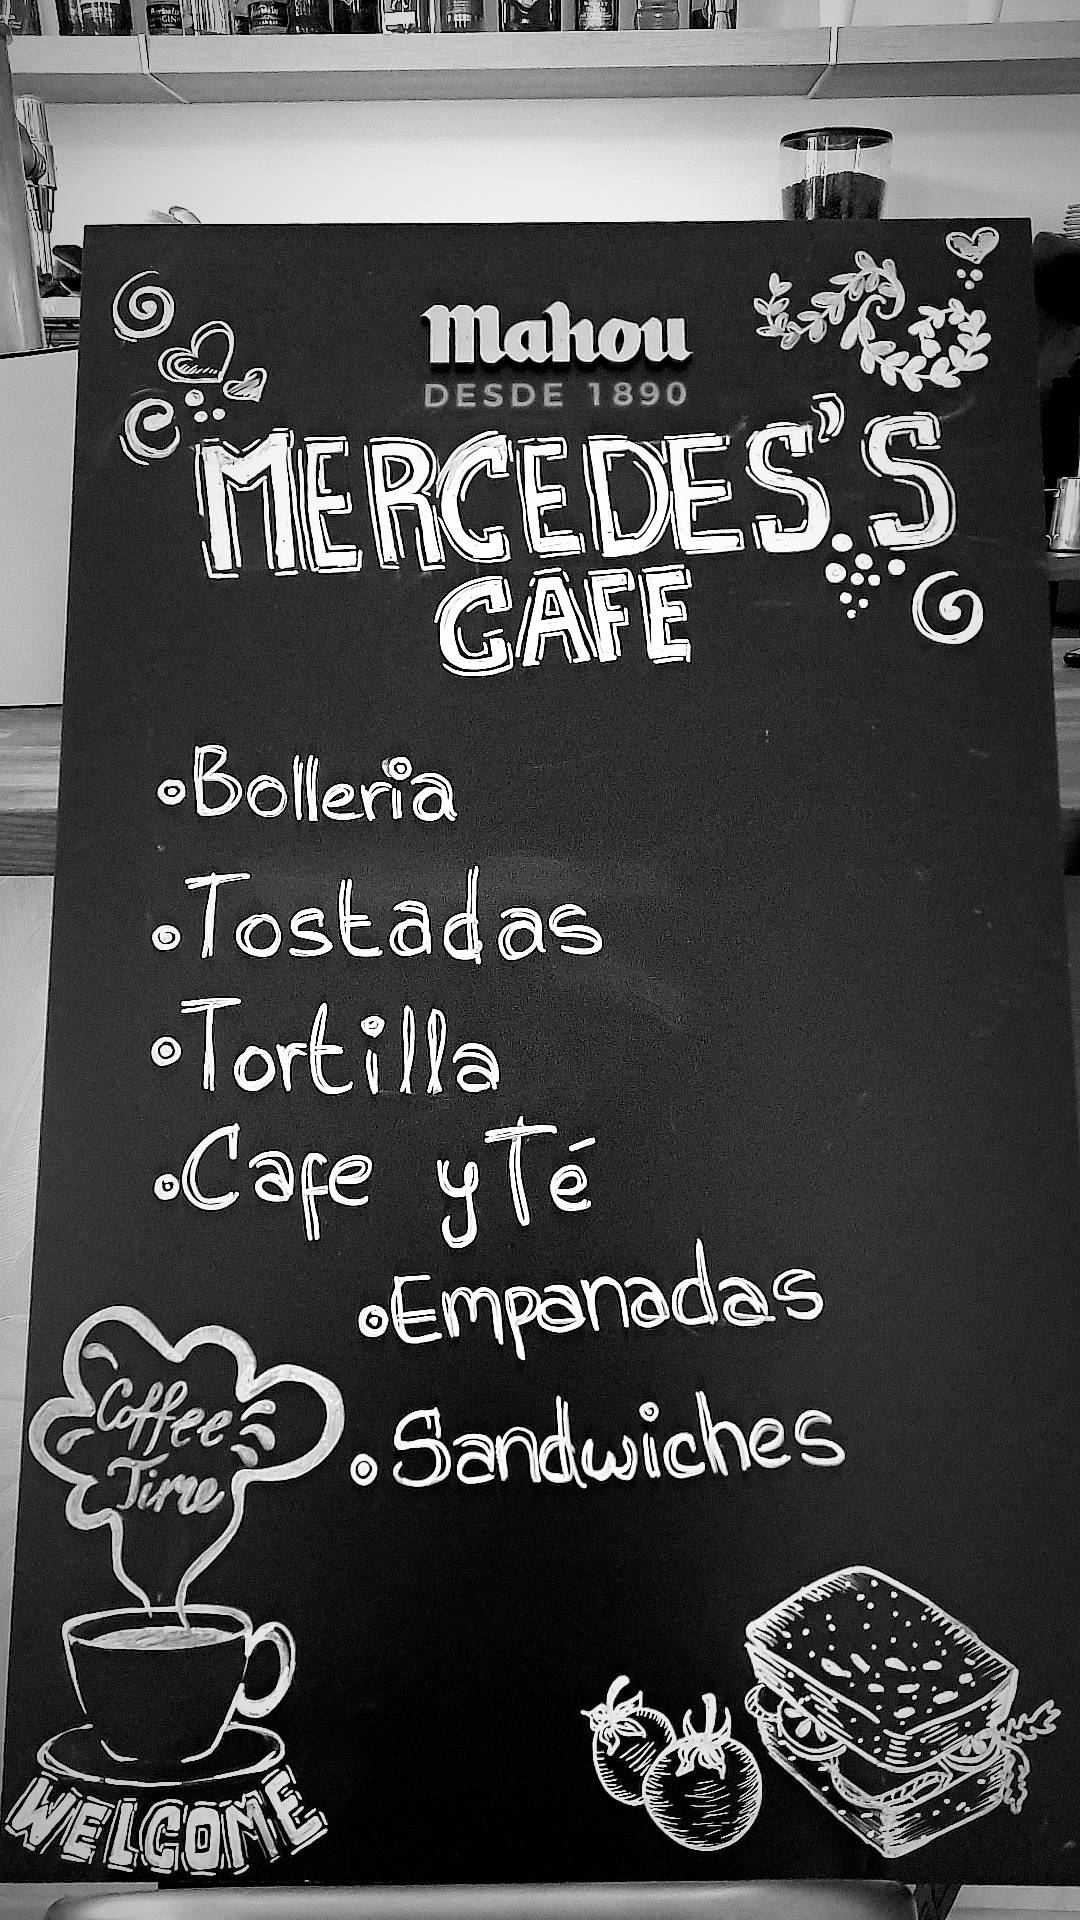 Mahou
DESDE 1890
MERCEDES'S
CAFE
Bolleria
Tostadas
Tortilla
Cafe y Té
Empanadas
Sandwiches
Coffee
Time
WELCOME